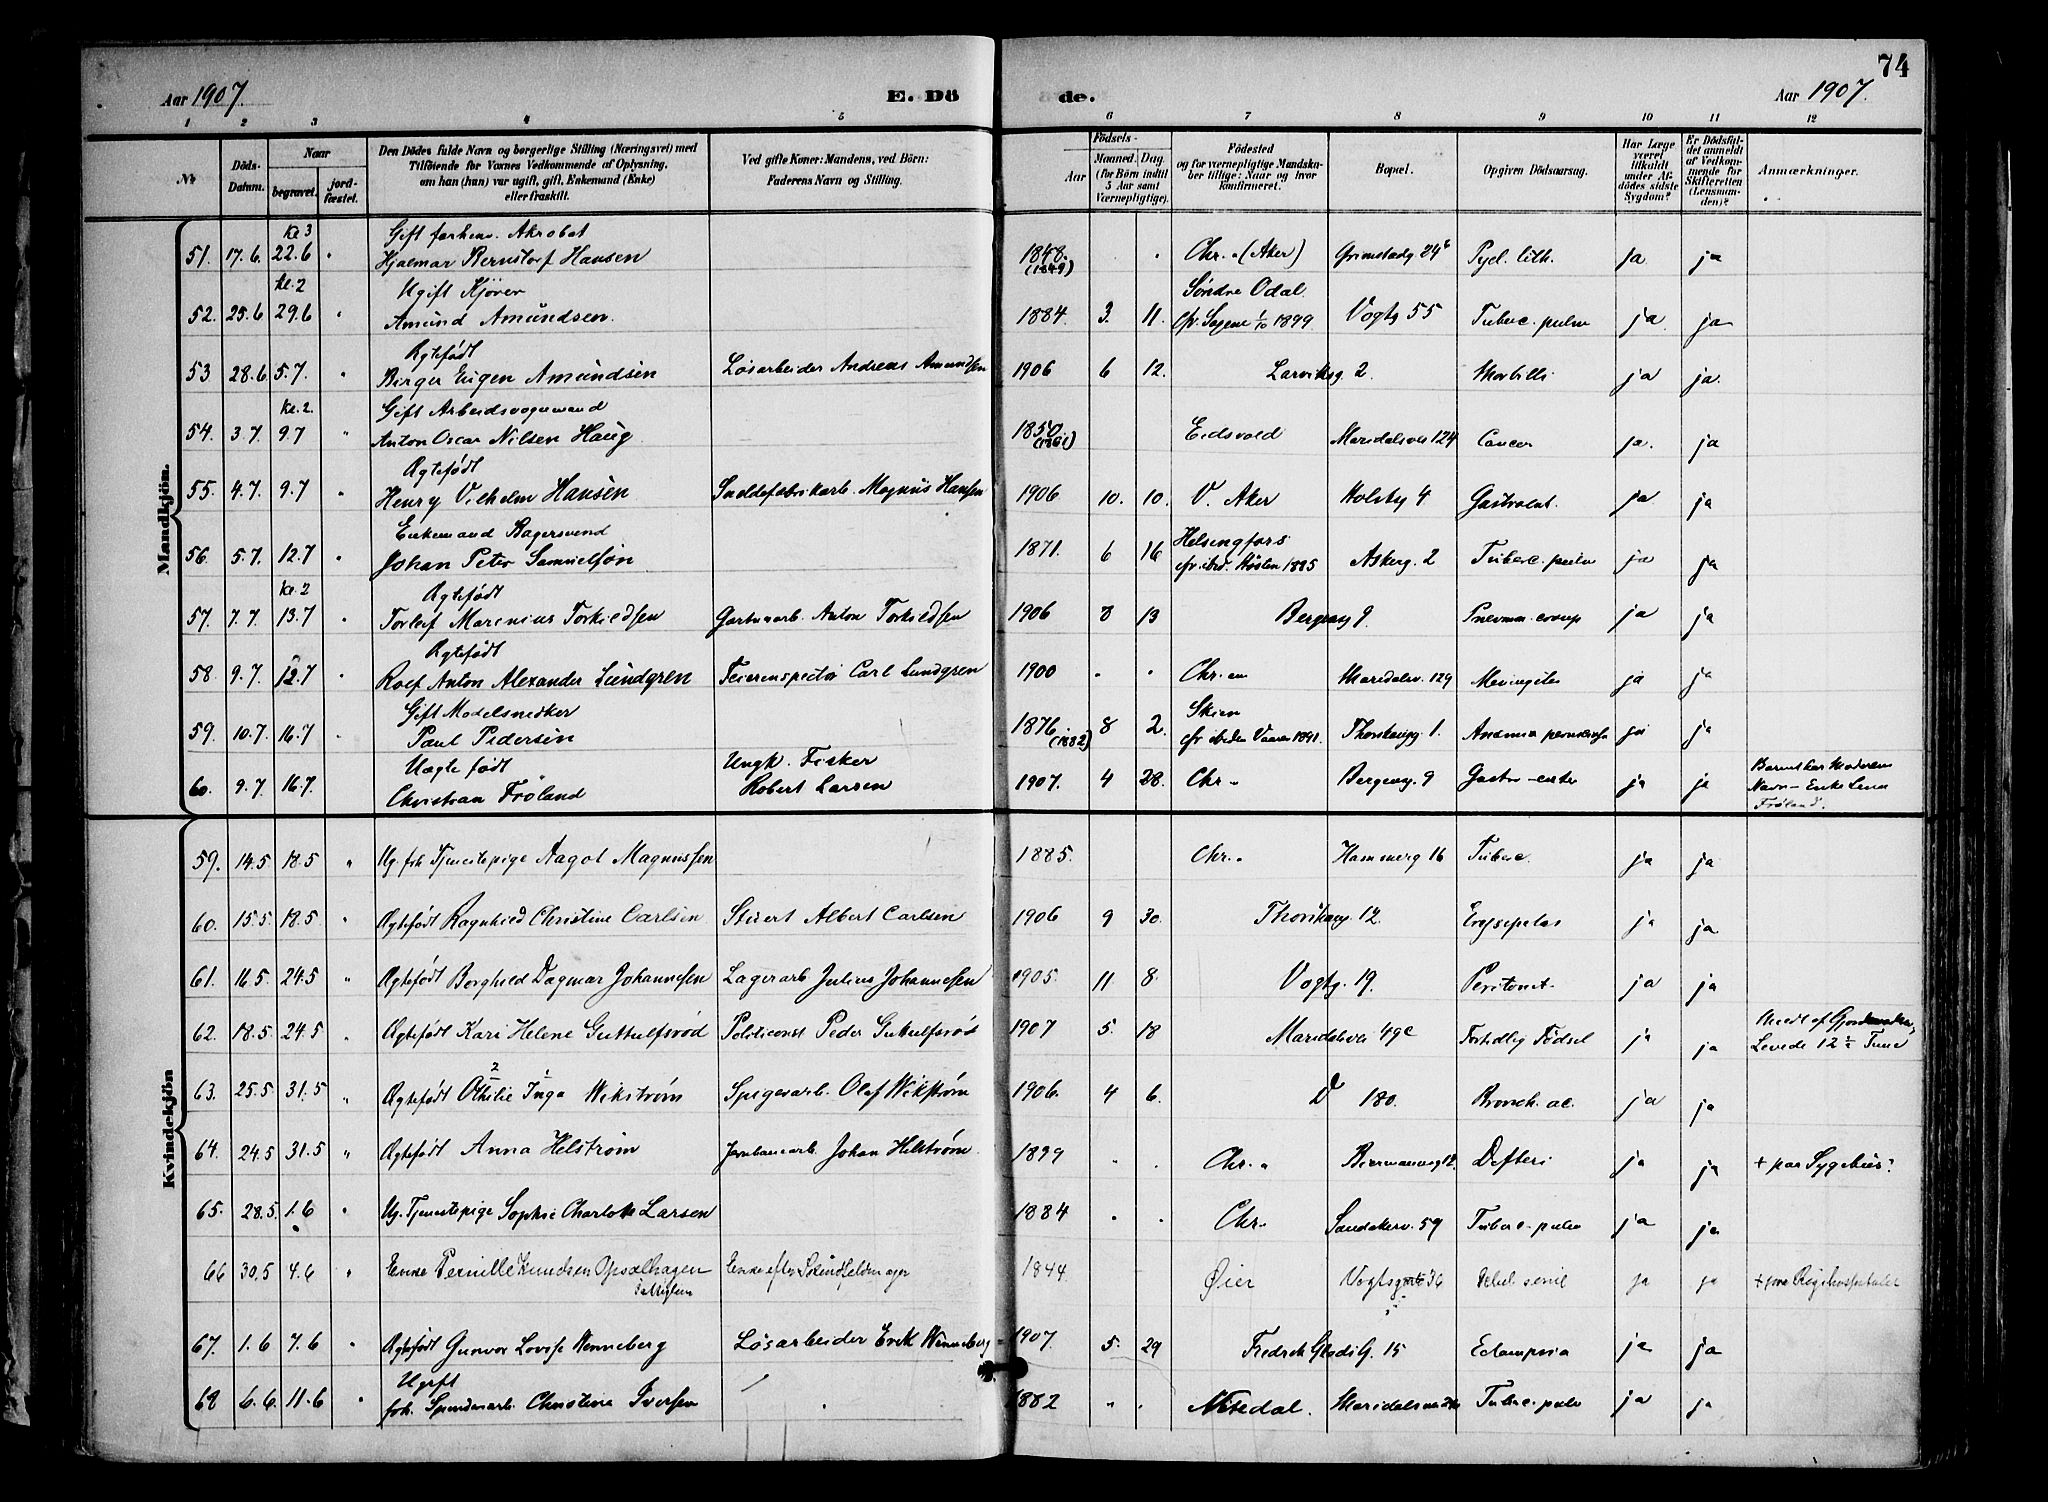 74
Aar 1907.
E. Dö
de.
Aar 1907.
1 2 3 4 5 6 7 8 9 10 11 12
Nr.
Döds-Datum.
Naar
begravet.
jordfæstet.
Den Dödes fulde Navn og borgerlige Stilling (Næringsvei) med
Tilföiende for Voxnes Vedkommende af Oplysning,
om han (hun) var ugift, gift, Enkemand (Enke)
eller fraskilt.
Ved gifte Koner: Mandens, ved Börn:
Faderens Navn og Stilling.
Födsels-
Aar
Maaned.
Dag.
(for Börn indtil
5 Aar samt
Værnepligtige).
Födested
og for værnepligtige Mandska-
ber tillige: Naar og hvor
konfirmeret.
Bopæl.
Opgiven Dödsaarsag.
Har Læge
været
tilkaldt
under Af-
dödes sidste
Sygdom?
Er Dödsfal-
det anmeldt
af Vedkom-
mende for
Skifteretten
(Lensman-
den)?
Anmærkninger.
Mandkjön.
Kl 3 Gift forhenv. Akrobat
51. 17.6. 22.6 " Hjalmar Bernstorf Hansen 1848. (1849) " Chr.a (Aker) Grimstadg 24b Pyel. lith. ja ja
kl. 2 Ugift Kjører Søndre Odal.
52. 25.6 29.6 " Amund Amundsen. 1884. 3. 11. Cfr. Sagene 1/10 1899 Vogtg 55 Tuberc. pulm ja ja
Ægtefødt
53. 28.6. 5.7. " Birger Eugen Amundsen Løsarbeider Andreas Amundsen 1906 6 12. Larviksg. 2 Morbilli ja ja.
kl. 2. Gift Arbeidsvognmand
54. 3.7. 9.7 " Anton Oscar Nilsen Haug 1850. (1851) Eidsvold Maridalsvei 124 Cancer ja. ja
Ægtefødt
55. 4.7. 9.7 " Henry Vilhelm Hansen Saeldefabrikarb. Magnus Hansen 1906 10. 10. V. Aker Holstg 4 ja ja
Enkemand Bagersvend Helsingfors
56. 5.7. 12.7 " Johan Peter Samuelson 1871. 6 16 cfr. ibid. Høsten 1885 Askerg. 2 Tuberc. pulm ja ja
kl. 2 Ægtefødt
57. 7.7. 13.7 " Torleif Marenius Torkildsen Gartnerarb. Anton Torkildsen 1906 8 13 Bergensg 9. Pneumon. croup ja ja
Ægtefødt
58. 9.7. 12.7 " Rolf Anton Alexander Lundgren Feierinspectør Carl Lundgren 1900 " " Chr.ia Maridalsv. 129 Meningites ja ja
Gift Modelsnedker Skien
59. 10.7. 16.7. " Paul Pedersen 1876 (1882) 8 2. cfr. ibiden Vaaren 1891. Thorshaugg. 1. Anæmia perniciosa ja ja
Uægte født Ungk. Fisker
60. 9.7. 16.7. Christian Frøland Robert Larsen 1907. 4 28. Chr.a Bergensg. 9 Gastro-enter ja ja Barnet har Moderens Navn - Enke Lena Frøland.
Kvindekjön
59. 14.5 18.5 " Ug. frh. Tjenestepige Aagot Magnussen 1885. Chr.a Hammerg 16 Tuberc. ja ja
60. 15.5. 18.5. " Ægtefødt Ragnhild Christine Carlsen Stuert Albert Carlsen 1906 9 30. Thorshaug. 12. Erysipelas ja ja
61. 16.5. 24.5 " Ægtefødt Borghild Dagmar Johannesen Lagerarb Julius Johannesen 1905. 11 8. Vogtg. 19. Peritonit. ja ja
62. 18.5. 24.5 " Ægtefødt Kari Helene Guttulfsrød Politiconst Peder Guttulfsrød 1907 5. 18 Maridalsvei 49c Fortidlig Fødsel ja ja Meldt af Gjordemoderen, Levede 12 ½ Time
63. 25.5. 31.5 " Ægtefødt Othilie 2 Inga 1 Wikstrøm Spigerarb. Olaf Wikstrøm 1906. 4 6. D 180. Bronch. ac. ja ja
64. 24.5 31.5 " Ægtefødt Anna Helstrøm Jernbanearb Johan Helstrøm. 1899 " " Chr.a Biermannsg 12. Defteri ja ja + paa Sygehus.
65. 28.5. 1.6 " Ug. Tjenestepige Sophie Charlotte Larsen 1884 " " Chr. Sandakerv. 59 Tuberc. pulm ja ja
66 30.5 4.6 " Enke Pernille Knudsen Opsalhagen Enke efter 1844 Øier Vogtsgate 36 Debil. senil ja ja + paa Rigshospitalet
67. 1.6 7.6 " Ægtefødt Gunvor Lovise Wenneberg Løsarbeider Erik Wenneberg 1907. 5. 29 Fredrik Glads G. 15 Eclampsia ja ja
Ugift
68 6.6. 11.6 " frh. Spinderarb. Christine Iversen 1882 " " Nitedal. Maridalsvei Tuberc. pulm ja ja